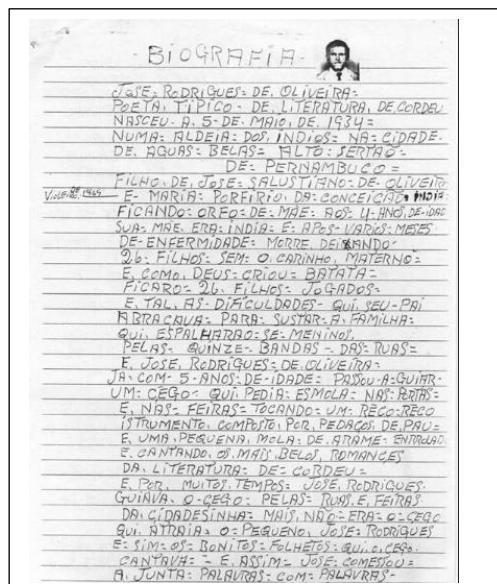 - BIOGRAFIA -
JOSE= RODRIGUES= DE. OLIVEIRA=
POETA. TIPICO - DE. LITERATURA. DE. CORDEU
NASCEU - A. 5 - DE. MAIO. DE. 1934=
NUMA= ALDEIA= DOS. INDIOS - NA= CIDADE-
DE. AGUAS= BELAS= ALTO= SERTAO=
DE= PERNAMBUCO=
FILHO. DE. JOSE= SALUSTIANO= DE= OLIVEIR
E- MARIA= PORFIRIO. DA= CONCEICAO INDIA
FICANDO= ORFO= DE= MAE= AOS- 4- ANOS. DE- IDAD
SUA= MAE. ERA= INDIA= E= APOS= VARIOS= MESES
DE= ENFERMIDADE= MORRE. DEIXANDO-
26= FILHOS= SEM= O. CARINHO. MATERNO=
E. COMO. DEUS= CRIOU= BATATA=
FICARO= 26. FILHOS= JOGADOS=
E. TAL. AS= DIFICULDADES- QUI. SEU- PAI
ABRACAVA= PARA= SUSTAR= A. FAMILHA=
QUI. ESPALHARAO= SE= MENINOS.
PELAS= QUINZE= BANDAS= DAS= RUAS=
E. JOSE. RODRIGUES= DE= OLIVEIRA=
JA= COM= 5- ANOS= DE= IDADE= PASSOU= A= GUIAR-
UM= CEGO= QUI. PEDIA= ESMOLA= NAS= PORTAS=
E. NAS= FEIRAS= TOCANDO= UM= RECO= RECO
ISTRUMENTO. COMPOSTO. POR. PEDAÇOS. DE. PAU=
E. UMA. PEQUENA. MOLA= DE. ARAME= ENTROLAD
E. CANTANDO. OS. MAIS. BELOS. ROMANCES
DA. LITERATURA= DE= CORDEU=
E. POR. MUITOS. TEMPOS= JOSE. RODRIGUES.
GUIAVA. O= CEGO= PELAS= RUAS. E. FEIRAS
DA. CIDADESINHA= MAIS. NÃO= ERA= O= CEGO
QUI. ATRAIA= O= PEQUENO. JOSE= RODRIGUES
E= SIM= OS= BONITOS= FOLHETOS= QUI. O. CEGO.
CANTAVA= = E. ASSIM= JOSE. COMESSOU=
A. JUNTA= PALAVRAS= COM= PALAVRAS=